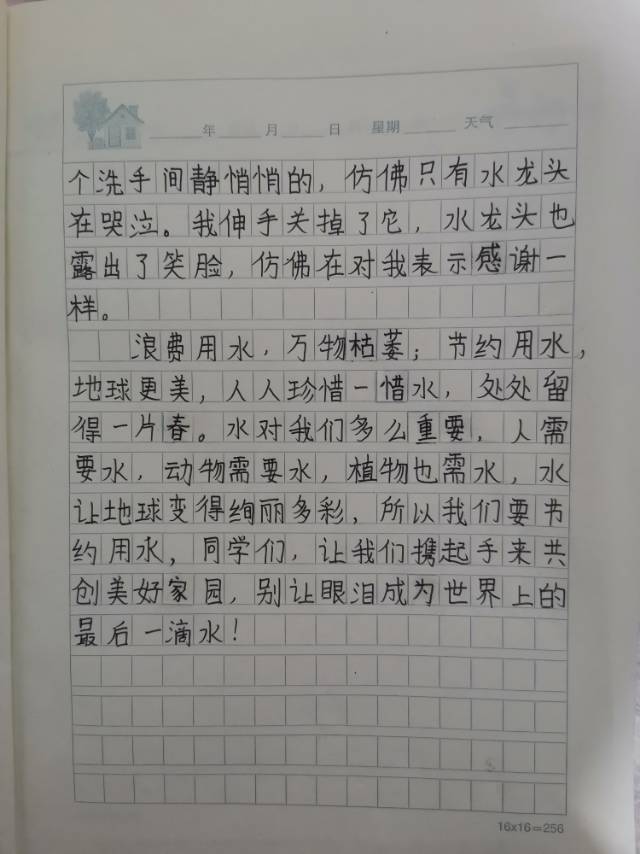 年 月 日 星期 天气
个洗手间静悄悄的，仿佛只有水龙头
在哭泣。我伸手关掉了它，水龙头也
露出了笑脸，仿佛在对我表示感谢一
样。
浪费用水，万物枯萎；节约用水，
地球更美，人人珍惜一惜水，处处留
得一片春。水对我们多么重要，人需
要水，动物需要水，植物也需水，水
让地球变得绚丽多彩，所以我们要节
约用水，同学们，让我们携起手来共
创美好家园，别让眼泪成为世界上的
最后一滴水！
16x16=256